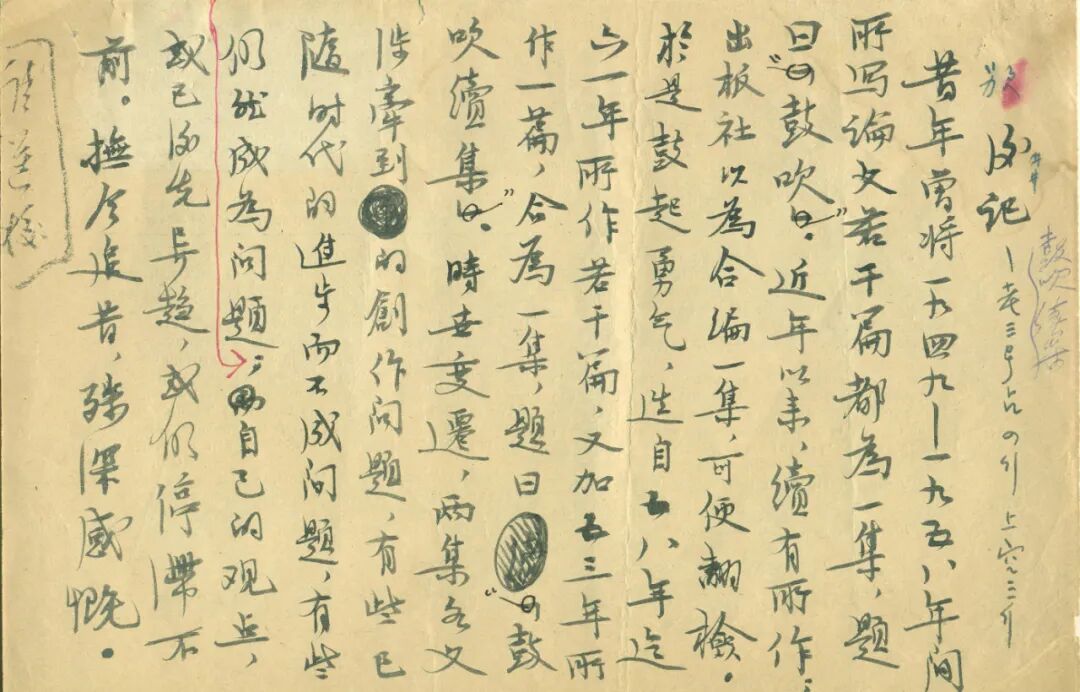 後记 — 老三号占4行上空三行
鼓吹续集
昔年曾将一九四九—一九五八年间
所写论文若干篇都為一集,题
曰"鼓吹"。近年以来,續有所作;
出板社以為合编一集,可便翻檢。
於是鼓起勇气,选自五八年迄
六一年所作若干篇,又加五三年所
作一篇,合為一集,题曰"鼓
吹續集"。時世变遷,兩集各文
涉牽到的創作问题,有些已
随时代的進步而不成问题,有些
仍然成為问题;自己的观点,
或已後先异趋,或仍停滯不
前。撫今追昔,殊深感慨。
请送校